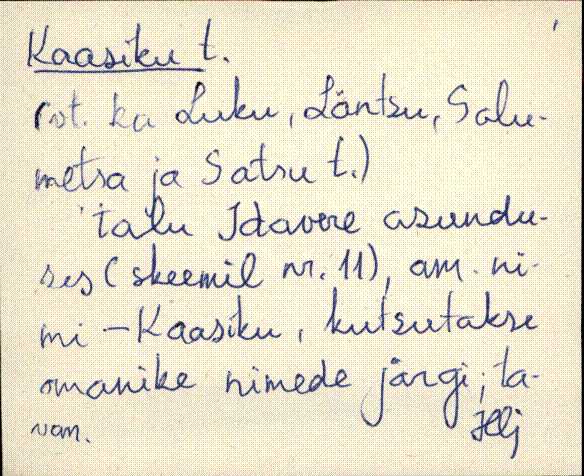 Kaasiku t.
(vt. ka Luku, Läntsu, Salu-
metsa ja Satsu t.)
talu Idavere asundu-
ses (skeemil nr. 11), am. ni-
mi – Kaasiku, kutsutakse
omanike nimede järgi; ta-
van.
Hlj